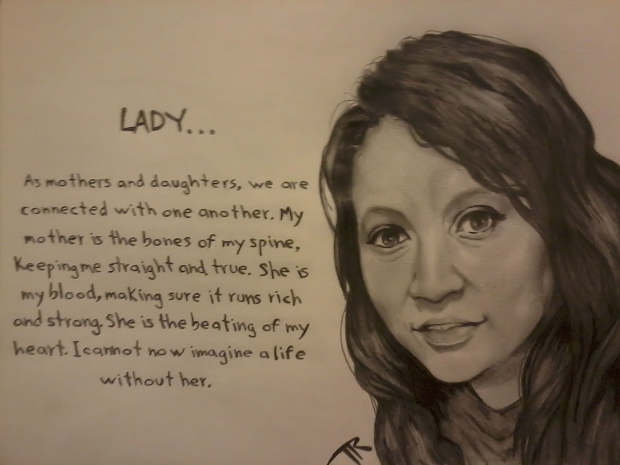 LADY...
As mothers and daughters, we are
connected with one another. My
mother is the bones of my spine,
Keeping me straight and true. She is
my blood, making sure it runs rich
and strong. She is the beating of my
heart. I cannot now imagine a life
without her.
TR